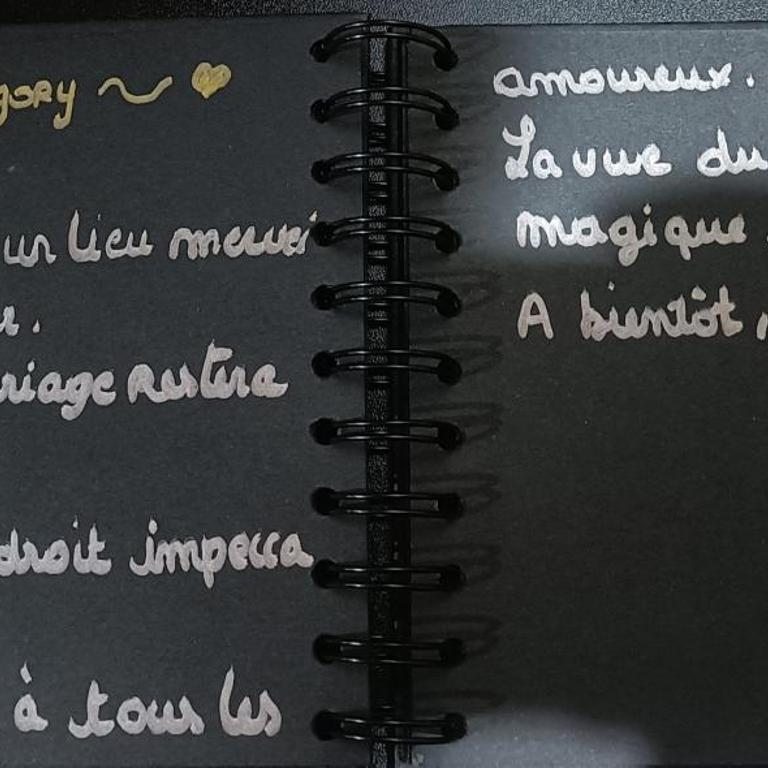 gory
un lieu mervei
r.
riage restera
droit impecca
à tous les
amoureux.
La vue du
magique
A bientôt